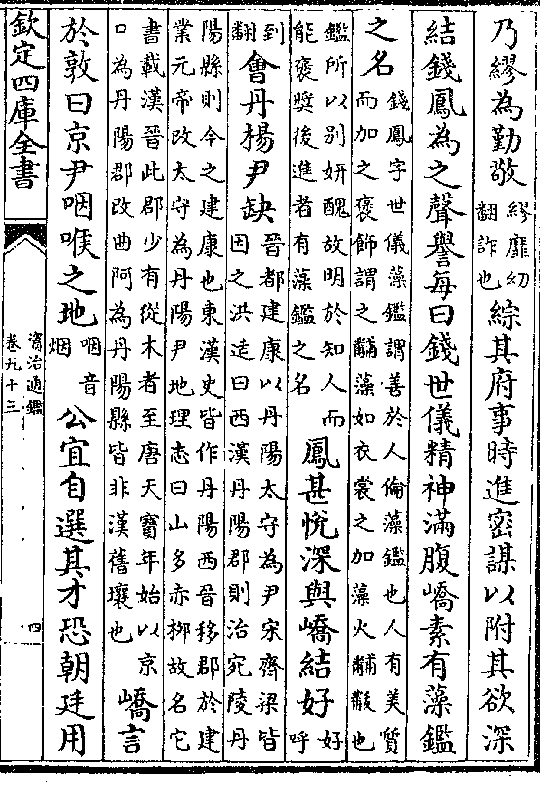 乃繆為勤敬繆靡幼翻詐也綜其府事時進密謀以附其欲深
結錢鳳為之聲譽每曰錢世儀精神滿腹嶠素有藻鑑
之名錢鳳字世儀藻鑑謂善於人倫藻鑑也人有美質而加之褒飾謂之黼藻如衣裳之加藻火黼黻也
鑑所以别妍醜故明於知人而能褒奬後進者有藻鑑之名鳳甚悅深與嶠結好好呼
到翻會丹楊尹缺晉都建康以丹陽太守為尹宋齊梁皆因之洪适曰西漢丹陽郡則治宛陵丹
陽縣則今之建康也東漢史皆作丹陽西晉移郡於建業元帝改太守為丹陽尹地理志曰山多赤柳故名它
書載漢晉此郡少有從木者至唐天寶年始以京口為丹陽郡改曲阿為丹陽縣皆非漢舊壤也嶠言
於敦曰京尹咽喉之地咽音烟公宜自選其才恐朝廷用
欽定四庫全書
資治通鑑
卷九十三
四